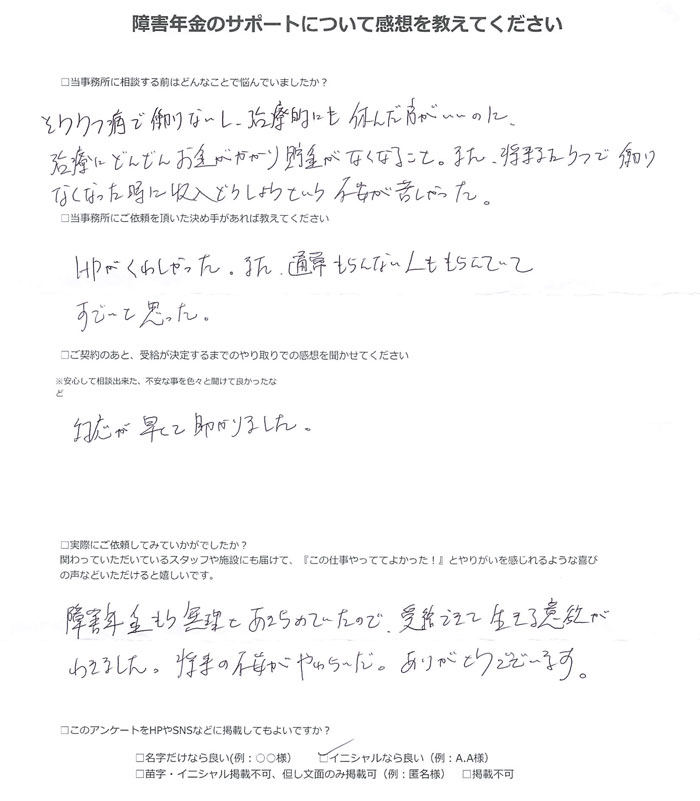 障害年金のサポートについて感想を教えてください
□当事務所に相談する前はどんなことで悩んでいましたか？
そううつ病で働けないし、治療的にも休んだ方がいいのに、
治療にどんどんお金がかかり貯金がなくなること。また、将来またうつで働け
なくなった時に収入どうしようという不安が苦しかった。
□当事務所にご依頼を頂いた決め手があれば教えてください
HPがくわしかった。また、通常もらえない人ももらえていて
すごいと思った。
□ご契約のあと、受給が決定するまでのやり取りでの感想を聞かせてください
※安心して相談出来た、不安な事を色々と聞けて良かったな
ど
対応が早くて助かりました。
□実際にご依頼してみていかがでしたか？
関わっていただいているスタッフや施設にも届けて、『この仕事やっててよかった！』とやりがいを感じれるような喜び
の声などいただけると嬉しいです。
障害年金もう無理とあきらめていたので、受給できて生きる意欲が
わきました。将来の不安がやわらいだ。ありがとうございます。
□このアンケートをHPやSNSなどに掲載してもよいですか？
□名字だけなら良い(例：○○様） □イニシャルなら良い（例：A.A様）
□苗字・イニシャル掲載不可、但し文面のみ掲載可（例：匿名様） □掲載不可